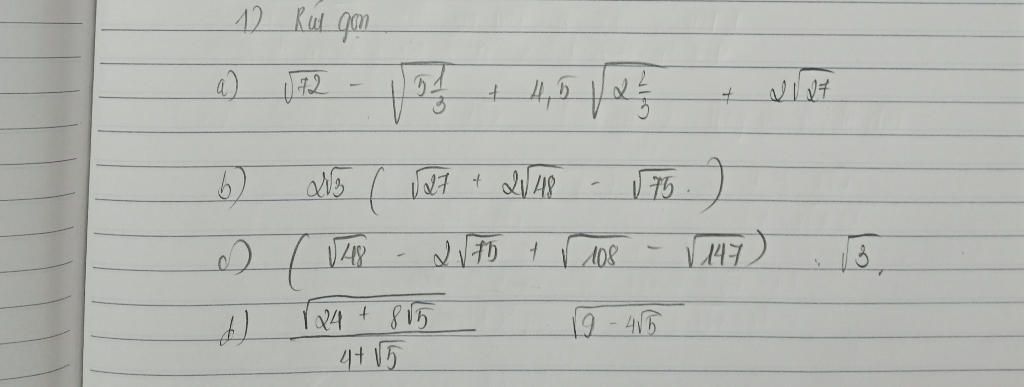 1) Rút gọn
a) √72 - √(5 1/3) + 4,5 √(2 2/3) + 2√27
b) 2√3 ( √27 + 2√48 - √75 . )
c) ( √48 - 2√75 + √108 - √147 ) . √3.
d) √(24 + 8√5) / (4+√5) √(9 - 4√5)